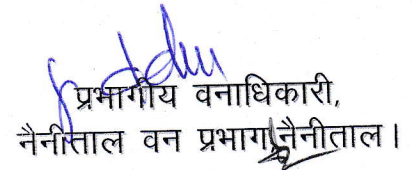 प्रभागीय वनाधिकारी,
नैनीताल वन प्रभाग नैनीताल।